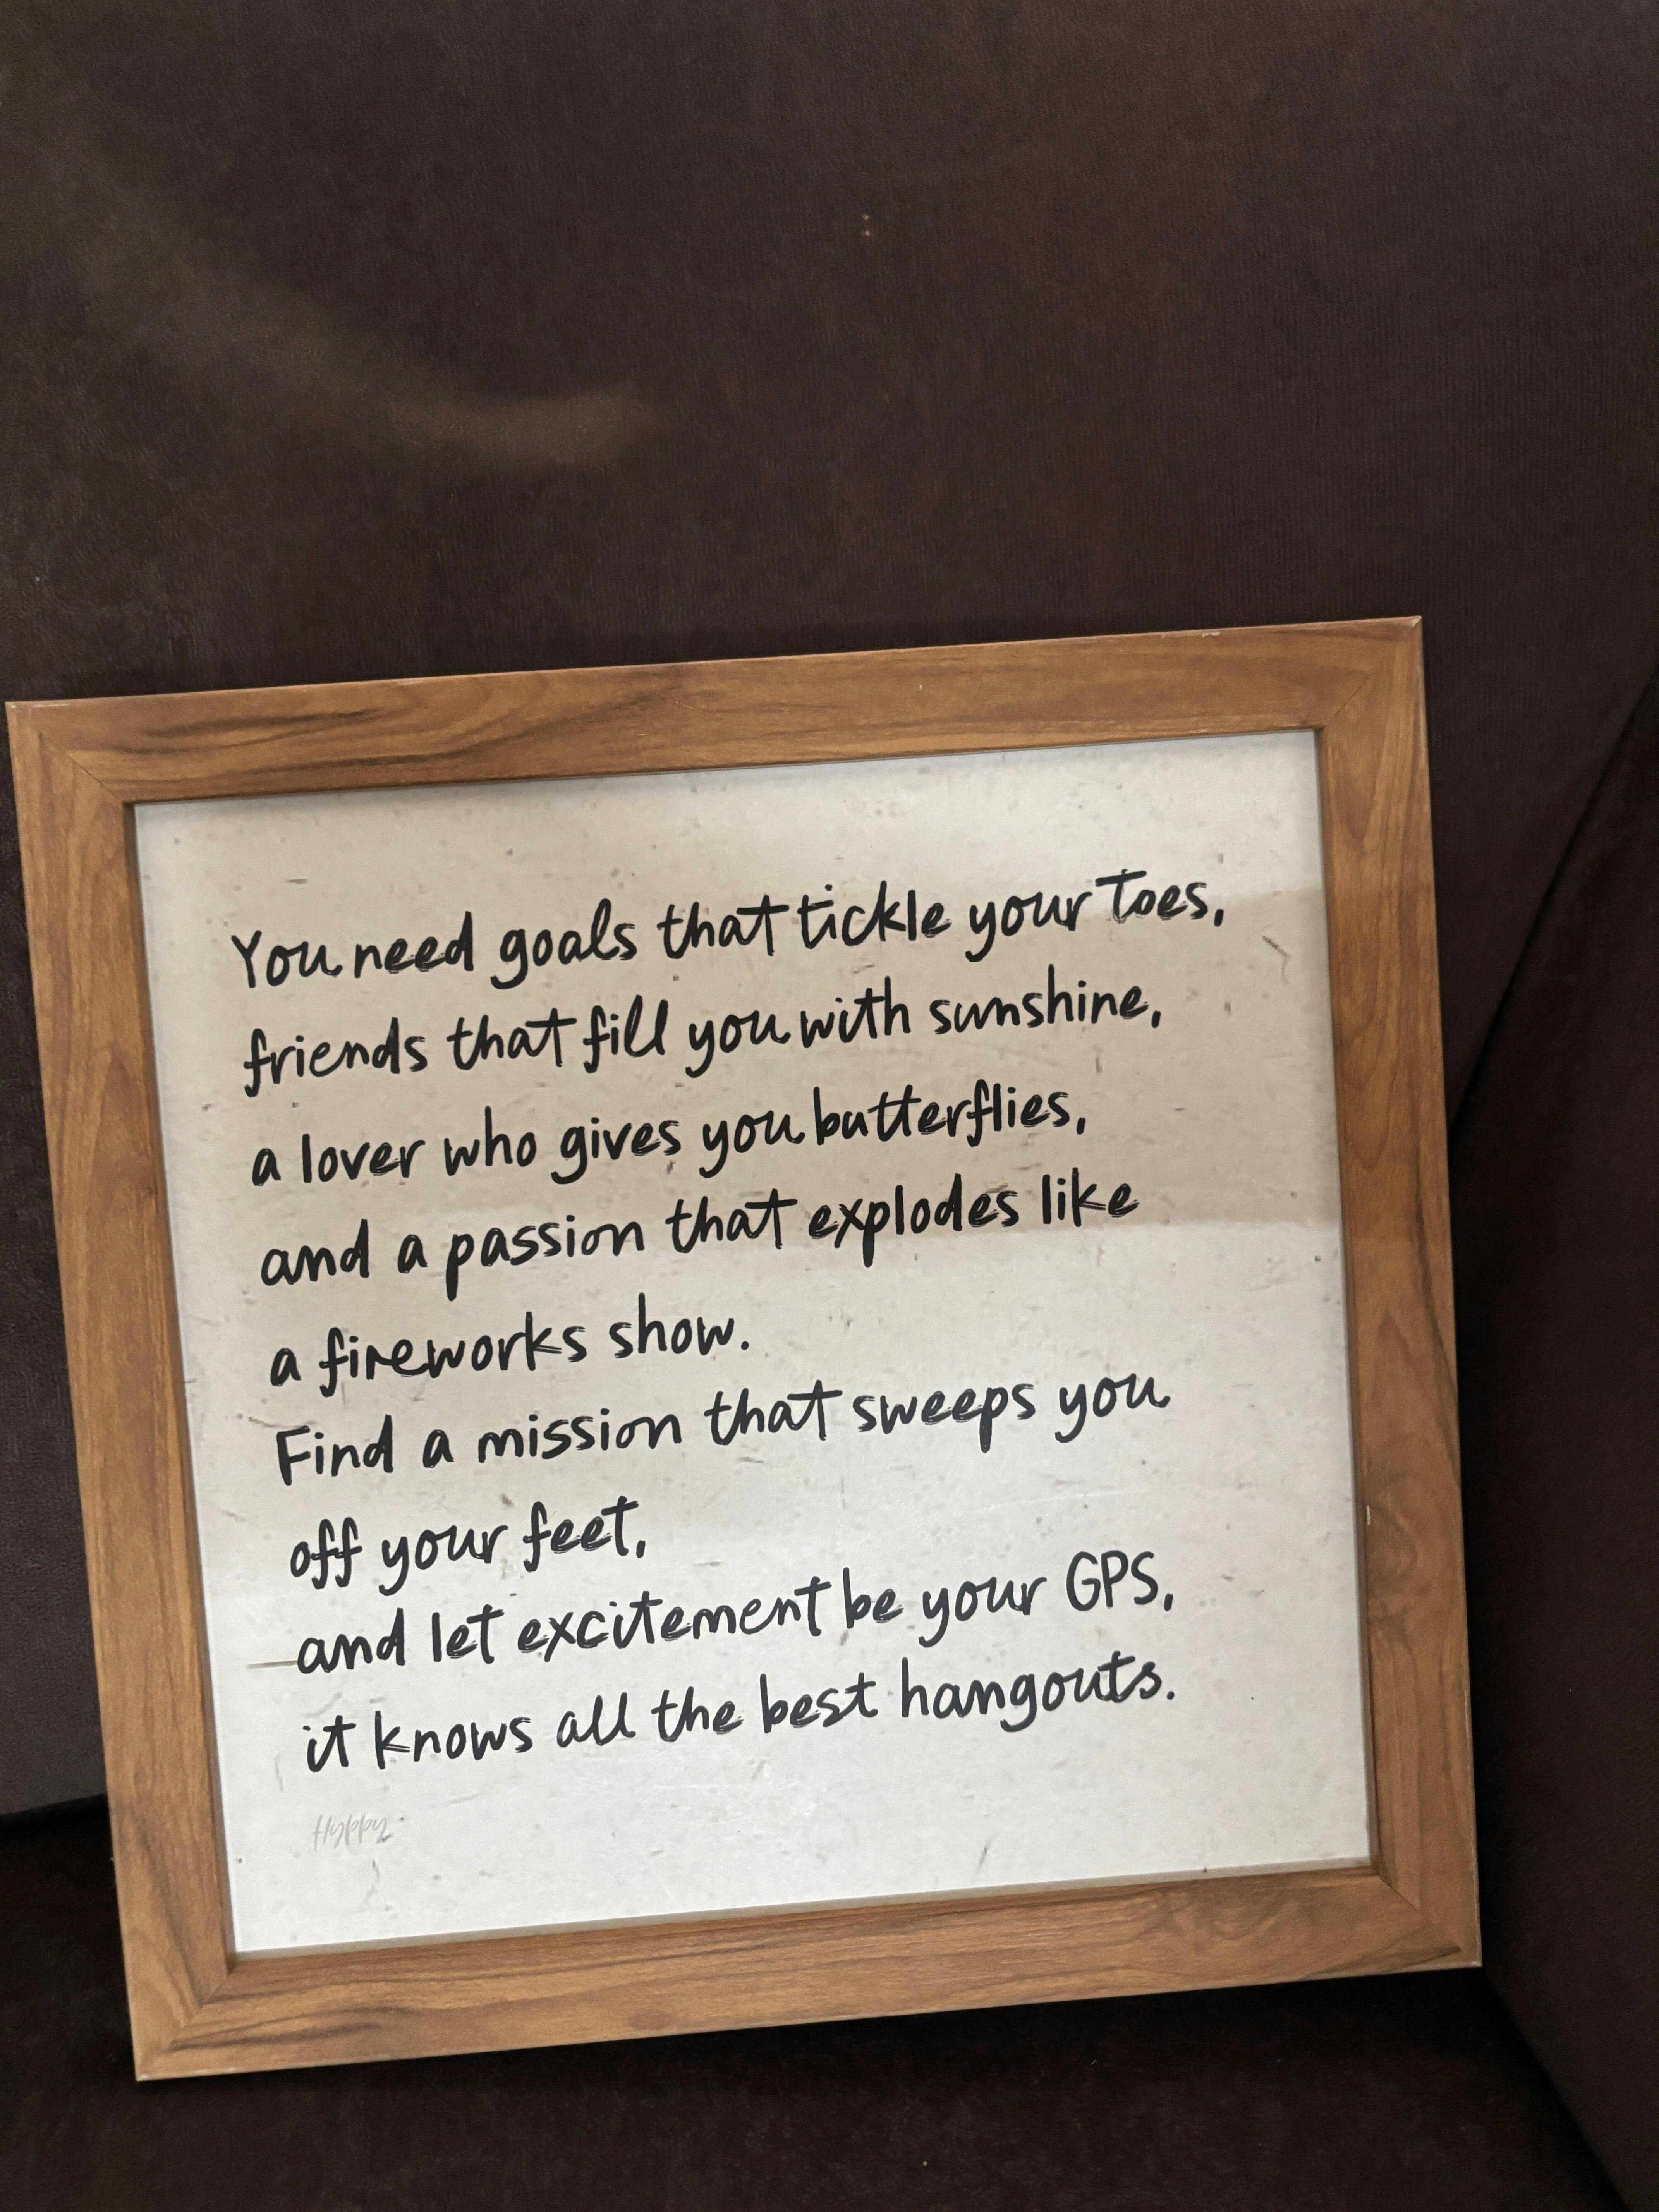 You need goals that tickle your toes,
friends that fill you with sunshine,
a lover who gives you butterflies,
and a passion that explodes like
a fireworks show.
Find a mission that sweeps you
off your feet,
and let excitement be your GPS,
it knows all the best hangouts.
Hyppy